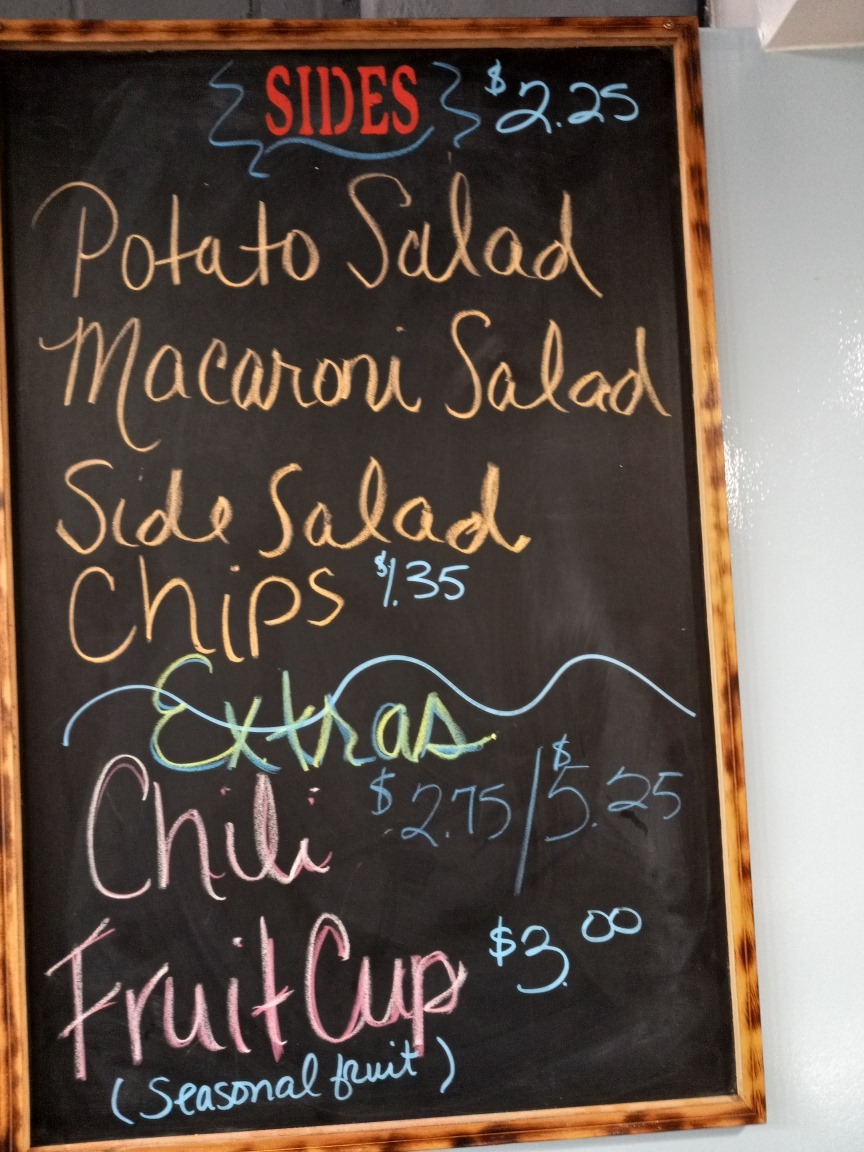 SIDES $2.25
Potato Salad
Macaroni Salad
Side Salad
Chips $1.35
Extras
Chili $2.75/$5.25
Fruit Cup $3.00
(Seasonal fruit)